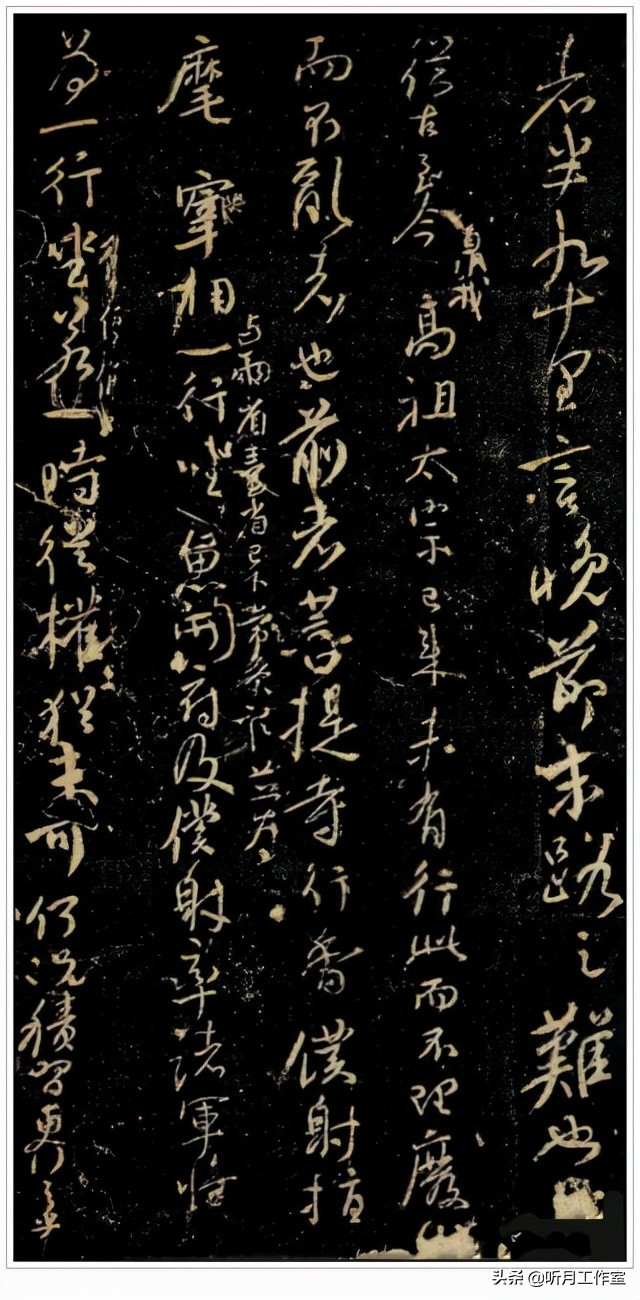 者半九十里言晚節末路之難也
從古至今臮我高祖太宗已来未有行此而不理廢
而不亂者也前者菩提寺行香僕射指
麾宰相与兩省臺省已下常參官並為一行坐魚開府及僕射率諸軍將
為一行坐若一時從權猶未可何況積習更行之乎
头条 @听月工作室